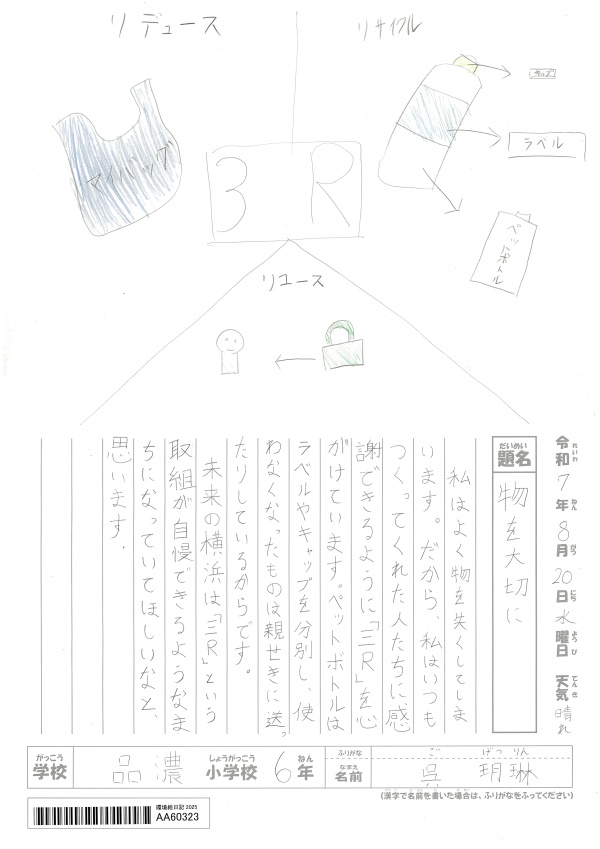 リデュース
リサイクル
マイバッグ
キャップ
ラベル
ペットボトル
3R
リユース
令和7年8月20日水曜日 天気晴れ
れいわ ねん がつ にち ようび てんき
だいめい
題名
物を大切に
私はよく物を失くしてしま
います。だから、私はいつも
つくってくれた人たちに感
謝できるように「三R」を心
がけています。ペットボトルは
ラベルやキャップを分別し、使
わなくなったものは親せきに送っ
たりしているからです。
未来の横浜は「三R」という
取組が自慢できるようなま
ちになっていてほしいなと、
思います.
がっこう しょうがっこう ねん
学校 品濃 小学校 6年
ふりがな ご げつ りん
なまえ
名前 呉 玥琳
(漢字で名前を書いた場合は、ふりがなをふってください)
環境絵日記 2025
AA60323